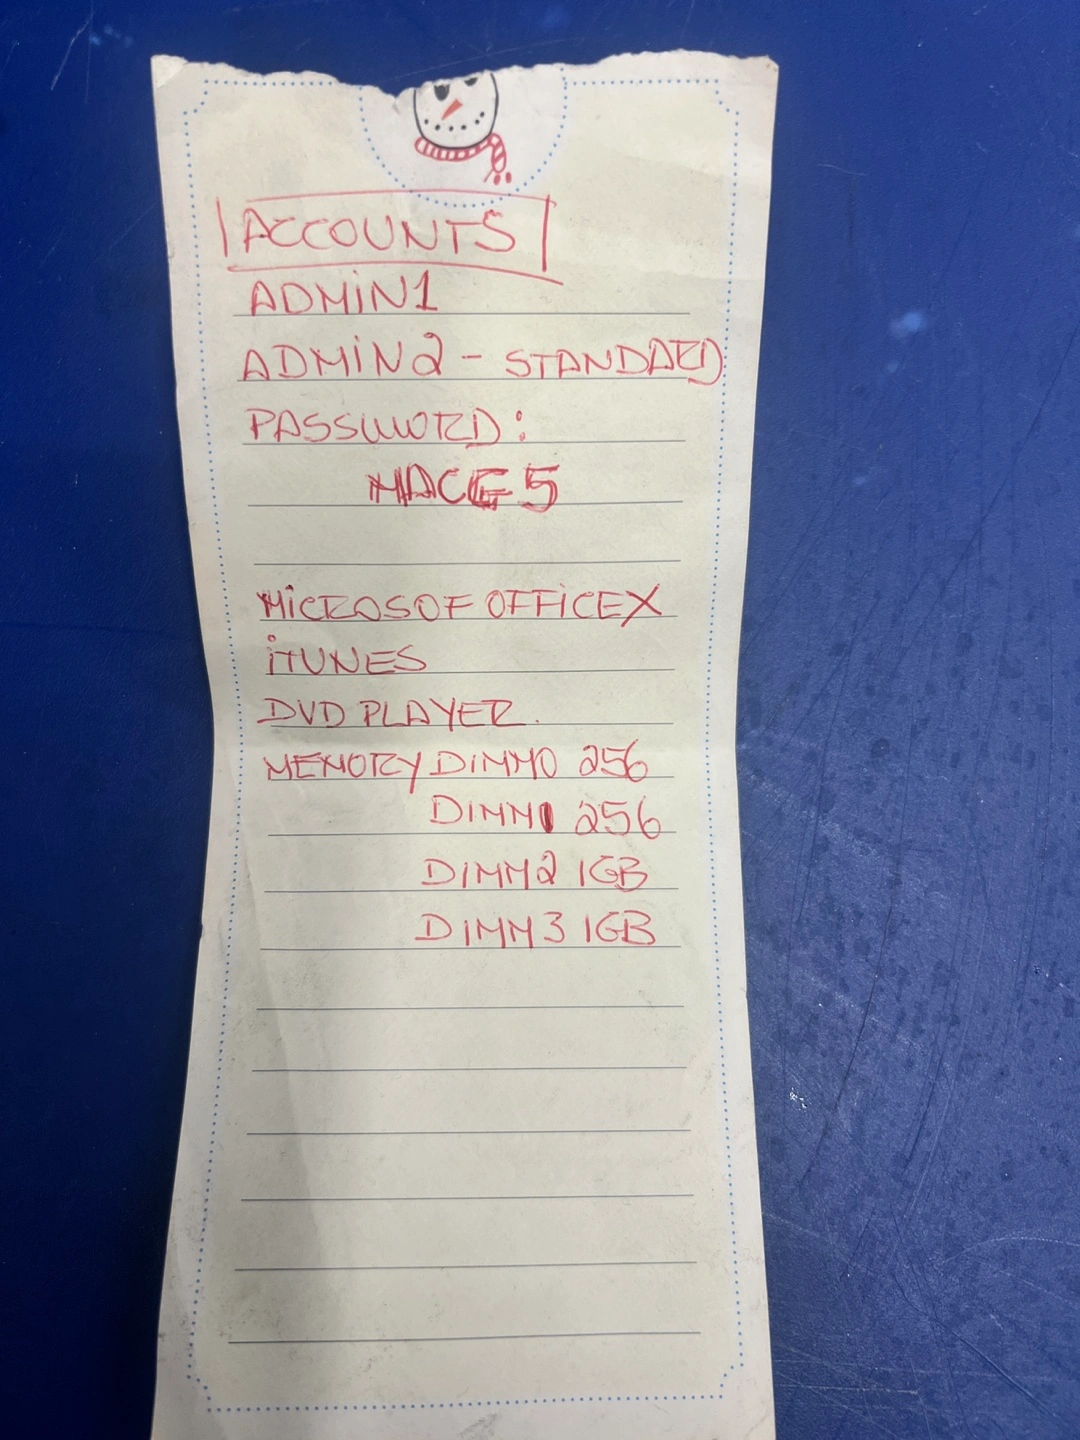 ACCOUNTS
ADMiN1
ADMiN2 - STANDARD
PASSWORD:
MACG5
MiCROSOF OFFiCEX
iTUNES
DVD PLAYER.
MEMORY DiMM0 256
DiMM1 256
DiMM2 1GB
DiMM3 1GB